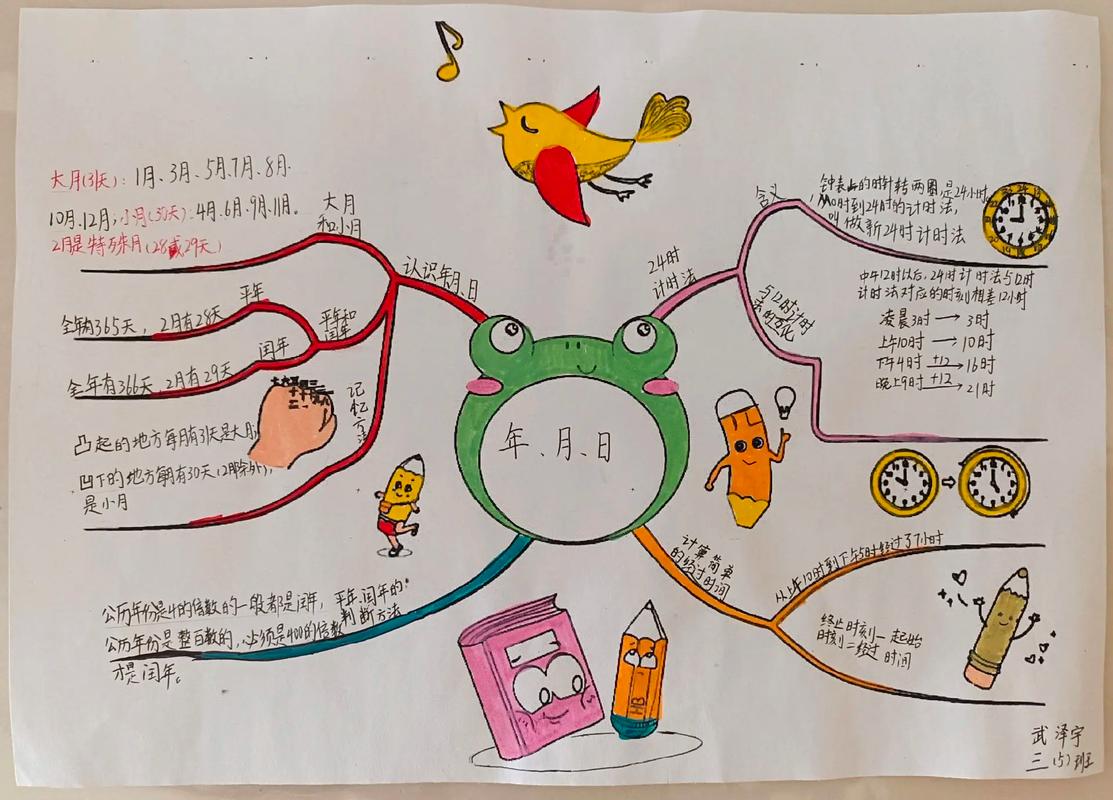 大月(31天):1月、3月、5月、7月、8月、
10月、12月;小月(30天):4月、6月、9月、11月。
2月是特殊月(28或29天)
大月
和小月
认识年、月、日
平年
全年有365天,2月有28天
平年和
闰年
闰年
全年有366天,2月有29天
记忆方法
凸起的地方每月有31天是大月;
凹下的地方每月有30天(2月除外),
是小月
年、月、日
24时
计时法
含义
钟表上的时针转两圈是24小时,
从0时到24时的计时法,
叫做新24时计时法
与12时计时
法的互化
中午12时以后,24时计时法与12时
计时法对应的时刻相差12小时
凌晨3时→3时
上午10时→10时
下午4时+12→16时
晚上9时+12→21时
计算简单
的经过时间
从上午10时到下午5时经过了7小时
终止时刻-起始
时刻=经过时间
公历年份是4的倍数的一般都是闰年,
平年、闰年的
判断方法
公历年份是整百数的,必须是400的倍数
才是闰年。
HB
武泽宇
三(5)班